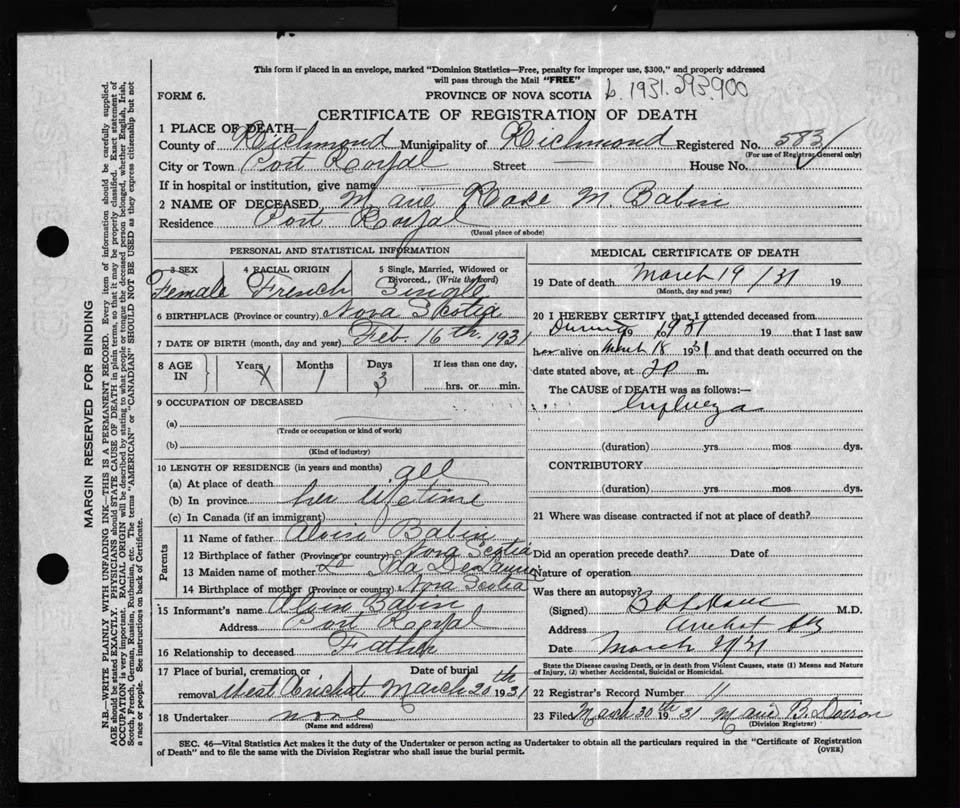 This form if placed in an envelope, marked "Dominion Statistics—Free, penalty for improper use, $300," and properly addressed
will pass through the Mail "FREE"
FORM 6.
PROVINCE OF NOVA SCOTIA
b. 1931.293900
CERTIFICATE OF REGISTRATION OF DEATH
1 PLACE OF DEATH—
County of Richmond Municipality of Richmond Registered No. 583
(For use of Registrar General only)
City or Town Port Royal Street — House No.
If in hospital or institution, give name —
2 NAME OF DECEASED Marie Rose M. Babin
Residence Port Royal
(Usual place of abode)
PERSONAL AND STATISTICAL INFORMATION
3 SEX Female
4 RACIAL ORIGIN French
5 Single, Married, Widowed or Divorced, (Write the word) Single
6 BIRTHPLACE (Province or country) Nova Scotia
7 DATE OF BIRTH (month, day and year) Feb. 16th. 1931
8 AGE IN
Years X
Months 1
Days 3
If less than one day,
hrs. or min.
9 OCCUPATION OF DECEASED
(a)
(Trade or occupation or kind of work)
(b)
(Kind of industry)
10 LENGTH OF RESIDENCE (in years and months)
(a) At place of death all
(b) In province her lifetime
(c) In Canada (if an immigrant)
Parents
11 Name of father Alvin Babin
12 Birthplace of father (Province or country) Nova Scotia
13 Maiden name of mother Ida
14 Birthplace of mother (Province or country) Nova Scotia
15 Informant's name Alvin Babin
Address Port Royal
16 Relationship to deceased Father
17 Place of burial, cremation or removal West Arichat
Date of burial March 20th 1931
18 Undertaker none
(Name and address)
MEDICAL CERTIFICATE OF DEATH
19 Date of death March 19/31 19
(Month, day and year)
20 I HEREBY CERTIFY that I attended deceased from
During 19 to 1931 19 that I last saw
her alive on March 18 1931 and that death occurred on the
date stated above, at 2 P m.
The CAUSE of DEATH was as follows:—
Influeza
(duration) yrs mos dys.
CONTRIBUTORY
(duration) yrs. mos. dys.
21 Where was disease contracted if not at place of death?
Did an operation precede death? Date of
Nature of operation
Was there an autopsy?
(Signed) M.D.
Address Arichat
Date March
State the Disease causing Death, or in death from Violent Causes, state (1) Means and Nature
of Injury, (2) whether Accidental, Suicidal or Homicidal.
22 Registrar's Record Number 11
23 Filed March 30th 1931 Marie B.
(Division Registrar)
SEC. 46—Vital Statistics Act makes it the duty of the Undertaker or person acting as Undertaker to obtain all the particulars required in the "Certificate of Registration
of Death" and to file the same with the Division Registrar who shall issue the burial permit.
(OVER)
MARGIN RESERVED FOR BINDING
N.B.—WRITE PLAINLY WITH UNFADING INK—THIS IS A PERMANENT RECORD. Every item of information should be carefully supplied.
AGE should be stated EXACTLY. PHYSICIANS should STATE CAUSE OF DEATH in plain terms, so that it may be properly classified. Exact statement of
OCCUPATION is very important. RACIAL ORIGIN will be described by stating to what people or tongue the deceased person belonged, whether English, Irish,
Scotch, French, German, Russian, Ruthenian, etc. The terms "AMERICAN" or "CANADIAN" SHOULD NOT BE USED as they express citizenship but not
a race or people. See instructions on back of Certificate.